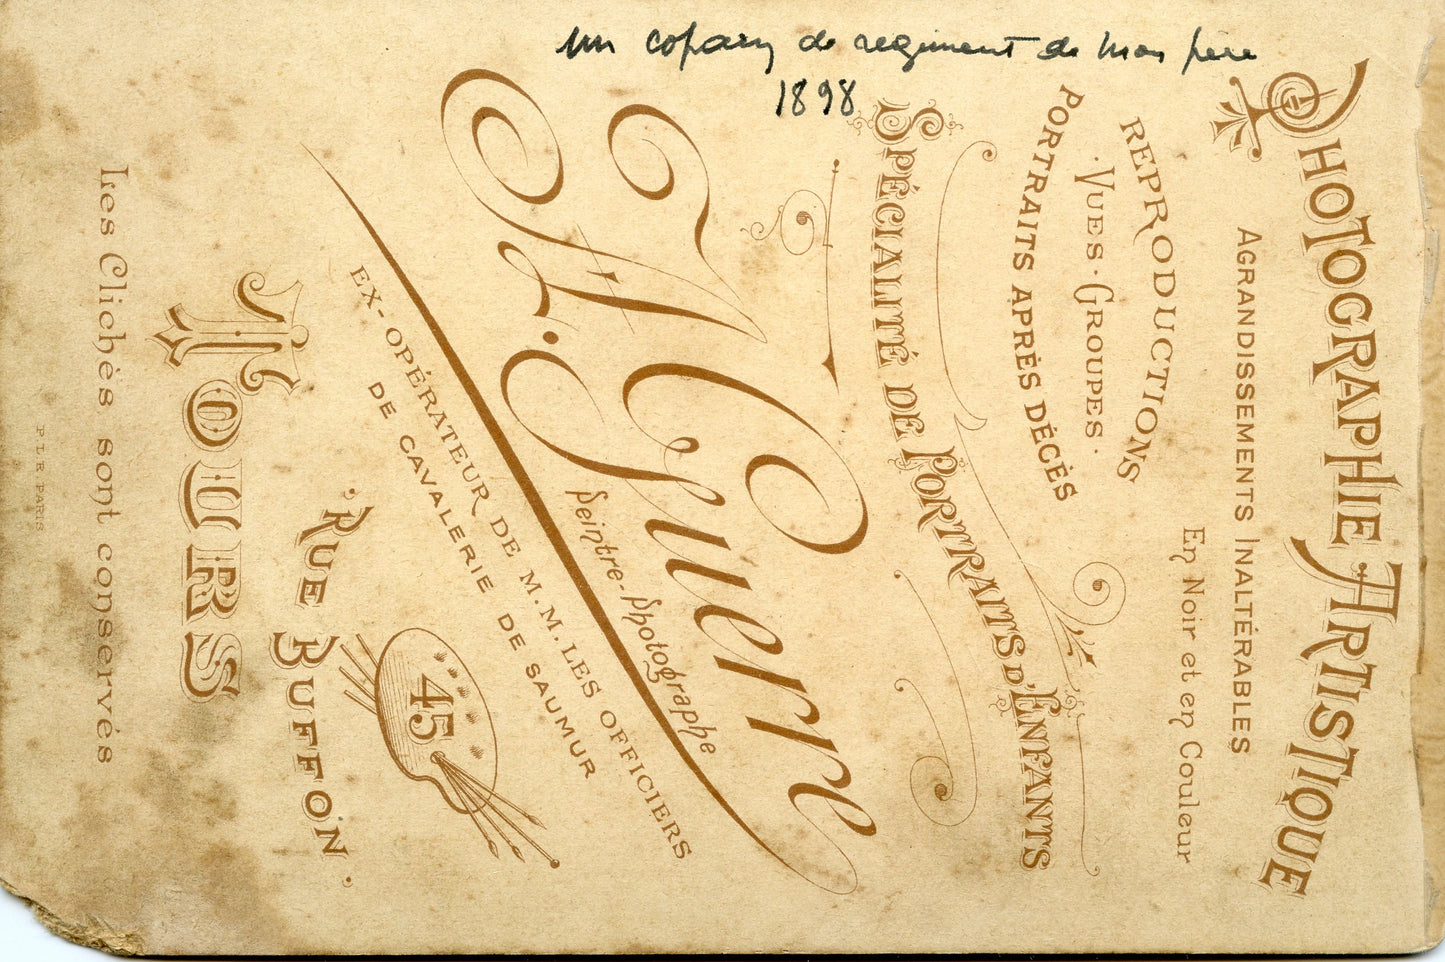 un copain de regiment de mon père
1898
PHOTOGRAPHIE ARTISTIQUE
AGRANDISSEMENTS INALTÉRABLES
En Noir et en Couleur
REPRODUCTIONS
·VUES·GROUPES·
PORTRAITS APRÈS DÉCÉS
SPÉCIALITÉ DE PORTRAITS D'ENFANTS
L. Guerre
Peintre-Photographe
EX-OPÉRATEUR DE M.M. LES OFFICIERS
DE CAVALERIE DE SAUMUR
45
·RUE BUFFON·
TOURS
Les Clichés sont conservés
P.L.R. PARIS